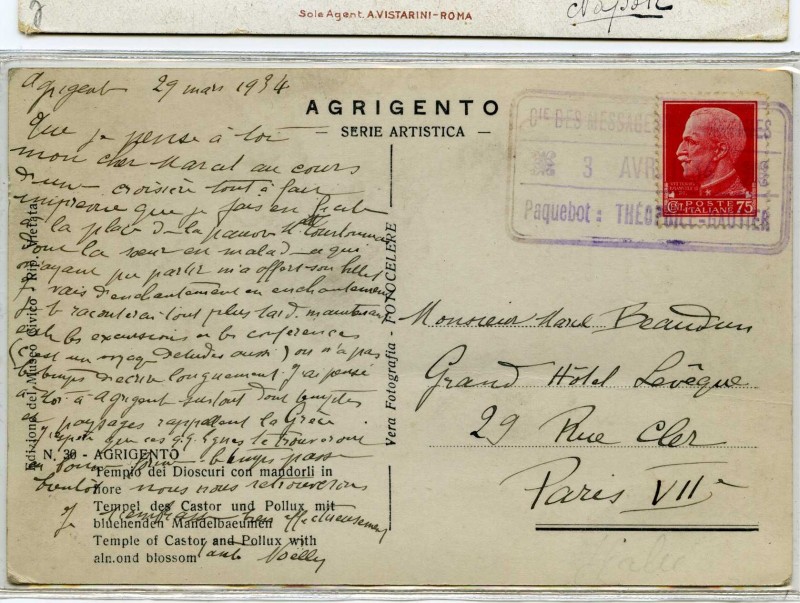 Sole Agent. A. VISTARINI-ROMA
Agrigente 29 mars 1934
AGRIGENTO
— SERIE ARTISTICA —
Que je pense à toi
mon cher Marcel au cours
d'une croisière tout à fait
imprévue que je fais en
à la place de la pauvre
dont la sœur est malade et qui
n'ayant pu partir m'a offert son billet
Je vais d'enchantement en enchantement
Je te raconterai tout plus tard. maintenant
les excursions les conférences
(c'est un voyage d'études aussi) on n'a pas
le temps d'écrire longuement. J'ai pensé
à toi à Agrigente surtout dont temples
et paysages rappellent la Grèce
J'espère que ces q.q. lignes te trouveront
en bonne le temps passe
bientôt nous nous retrouverons
Je affectueusement
tante Noëlly
Edizione del Museo Civico - Rip. Vietata
N. 30 - AGRIGENTO
Tempio dei Dioscuri con mandorli in
fiore
Tempel des Castor und Pollux mit
bluehenden Mandelbaeumen
Temple of Castor and Pollux with
almond blossom
Vera Fotografia - FOTOCELERE
CIE DES MESSAGERIES MARITIMES
3 AVR
Paquebot : THÉOPHILE-GAUTIER
POSTE
ITALIANE
CENT 75
Monsieur Marcel Beaudun
Grand Hôtel Levêque
29 Rue Cler
Paris VIIe